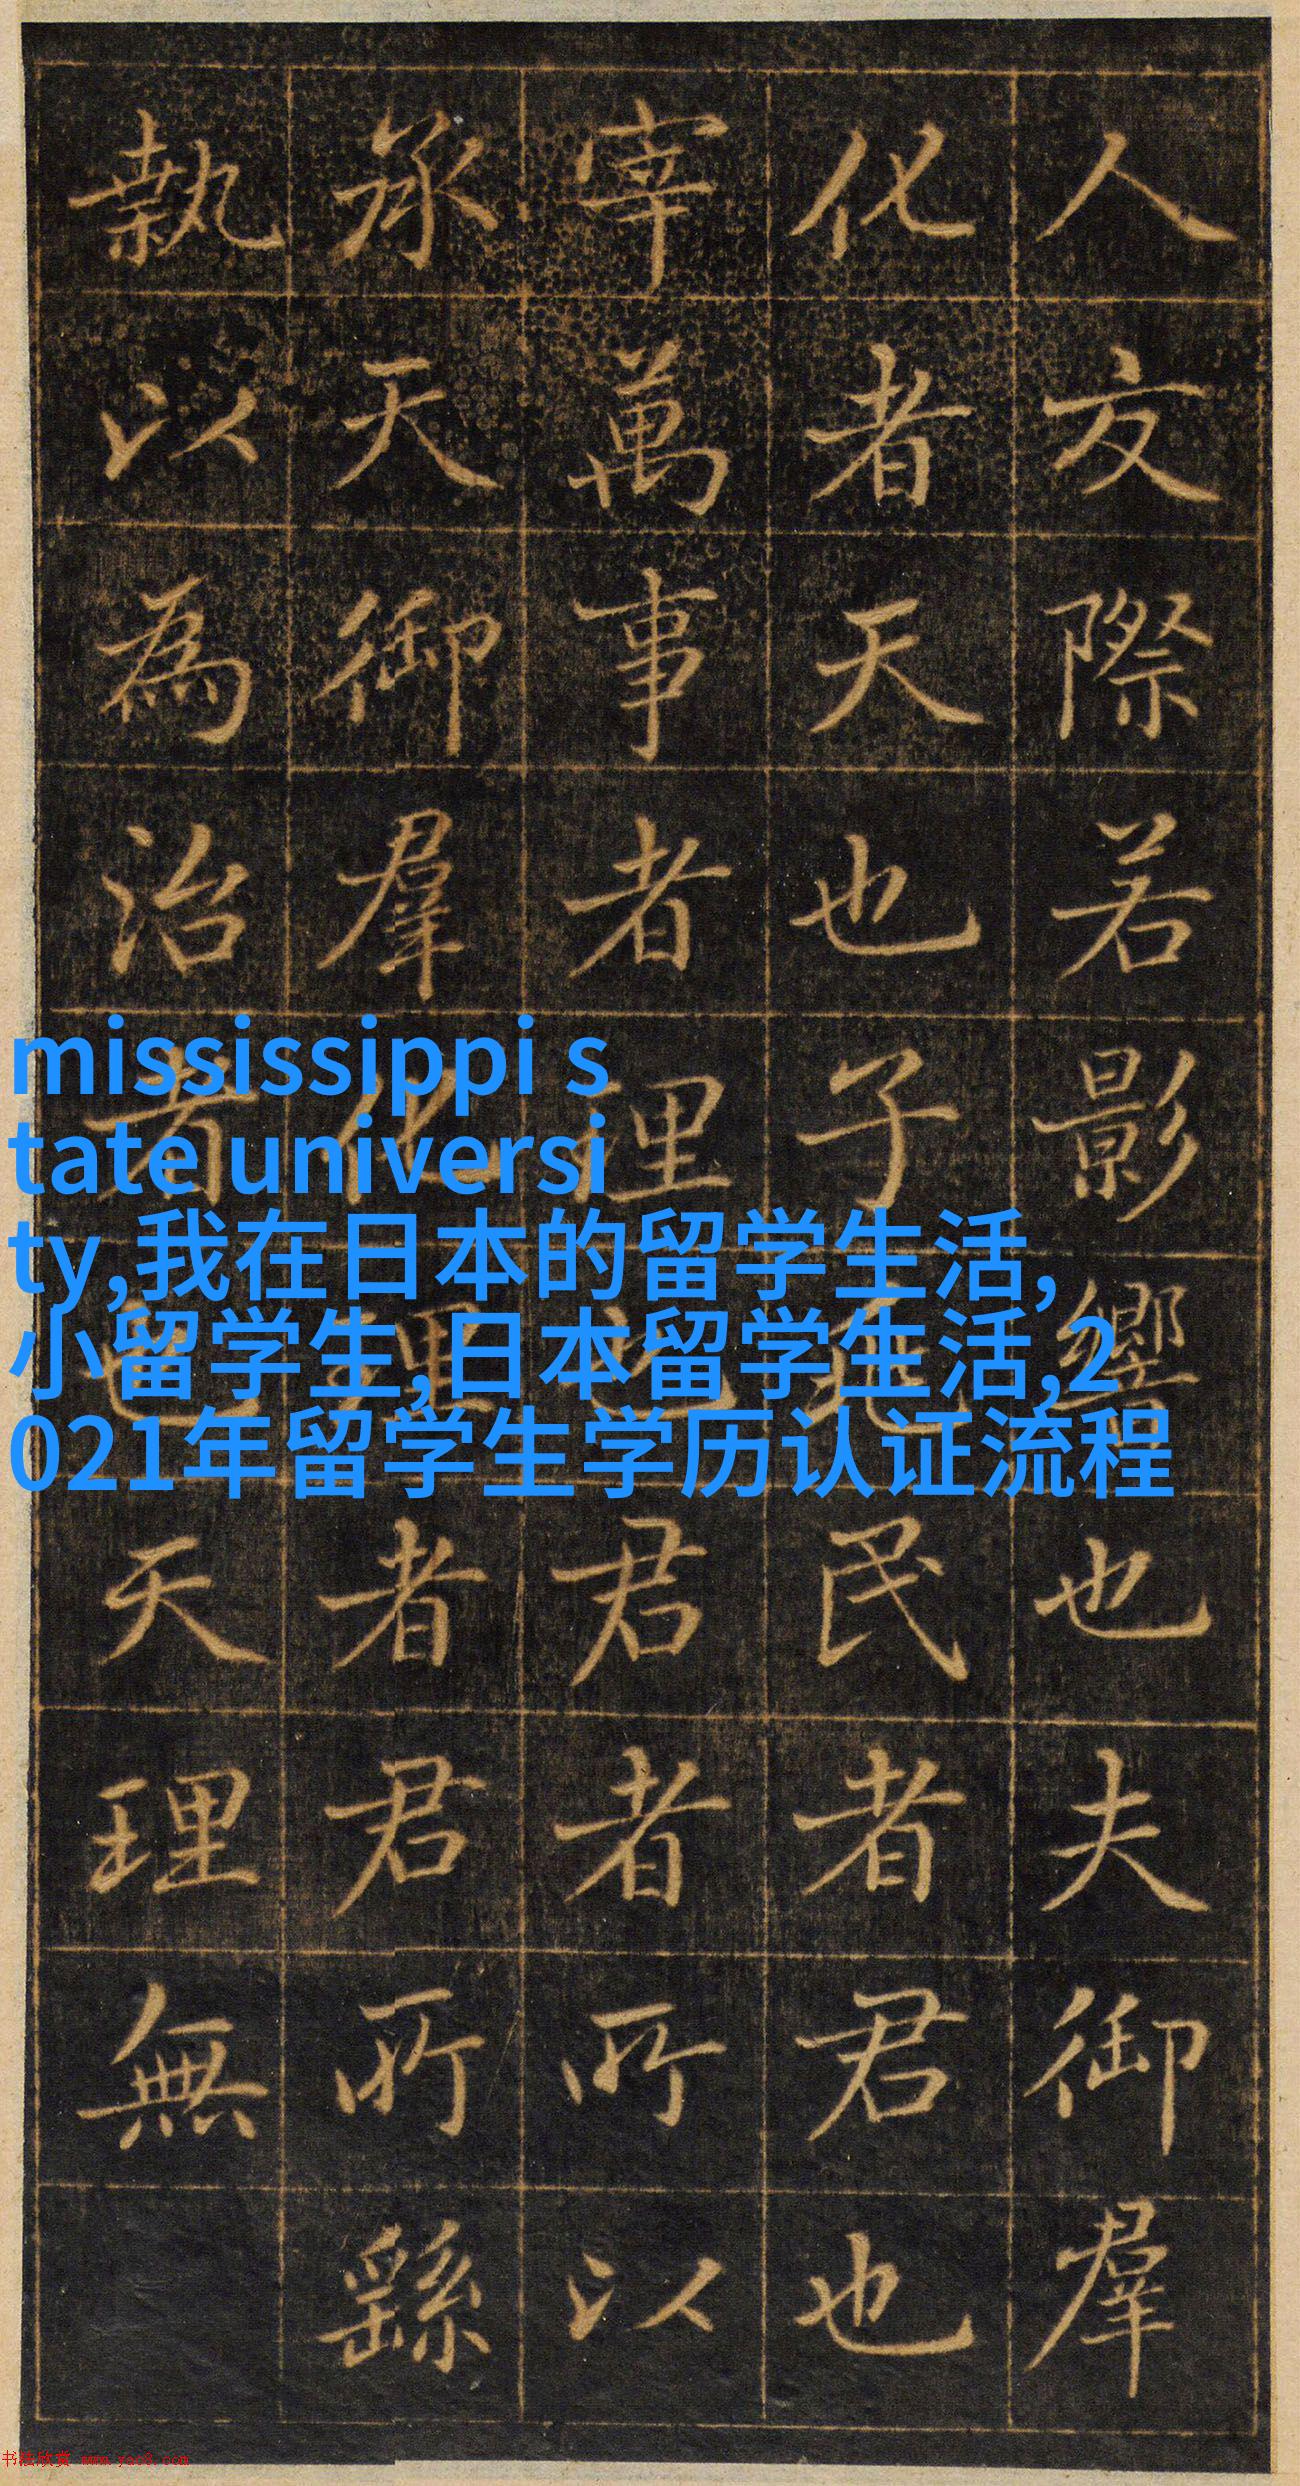 人交際若影響也夫御羣
化者天也子兆民者君也
宰萬事者理也君者所以
承天御羣化理者君所繇
執以為治者也天理無
mississippi s
tate universi
ty,我在日本的留学生活,
小留学生,日本留学生活,2
021年留学生学历认证流程
书法欣赏 www.yac8.com